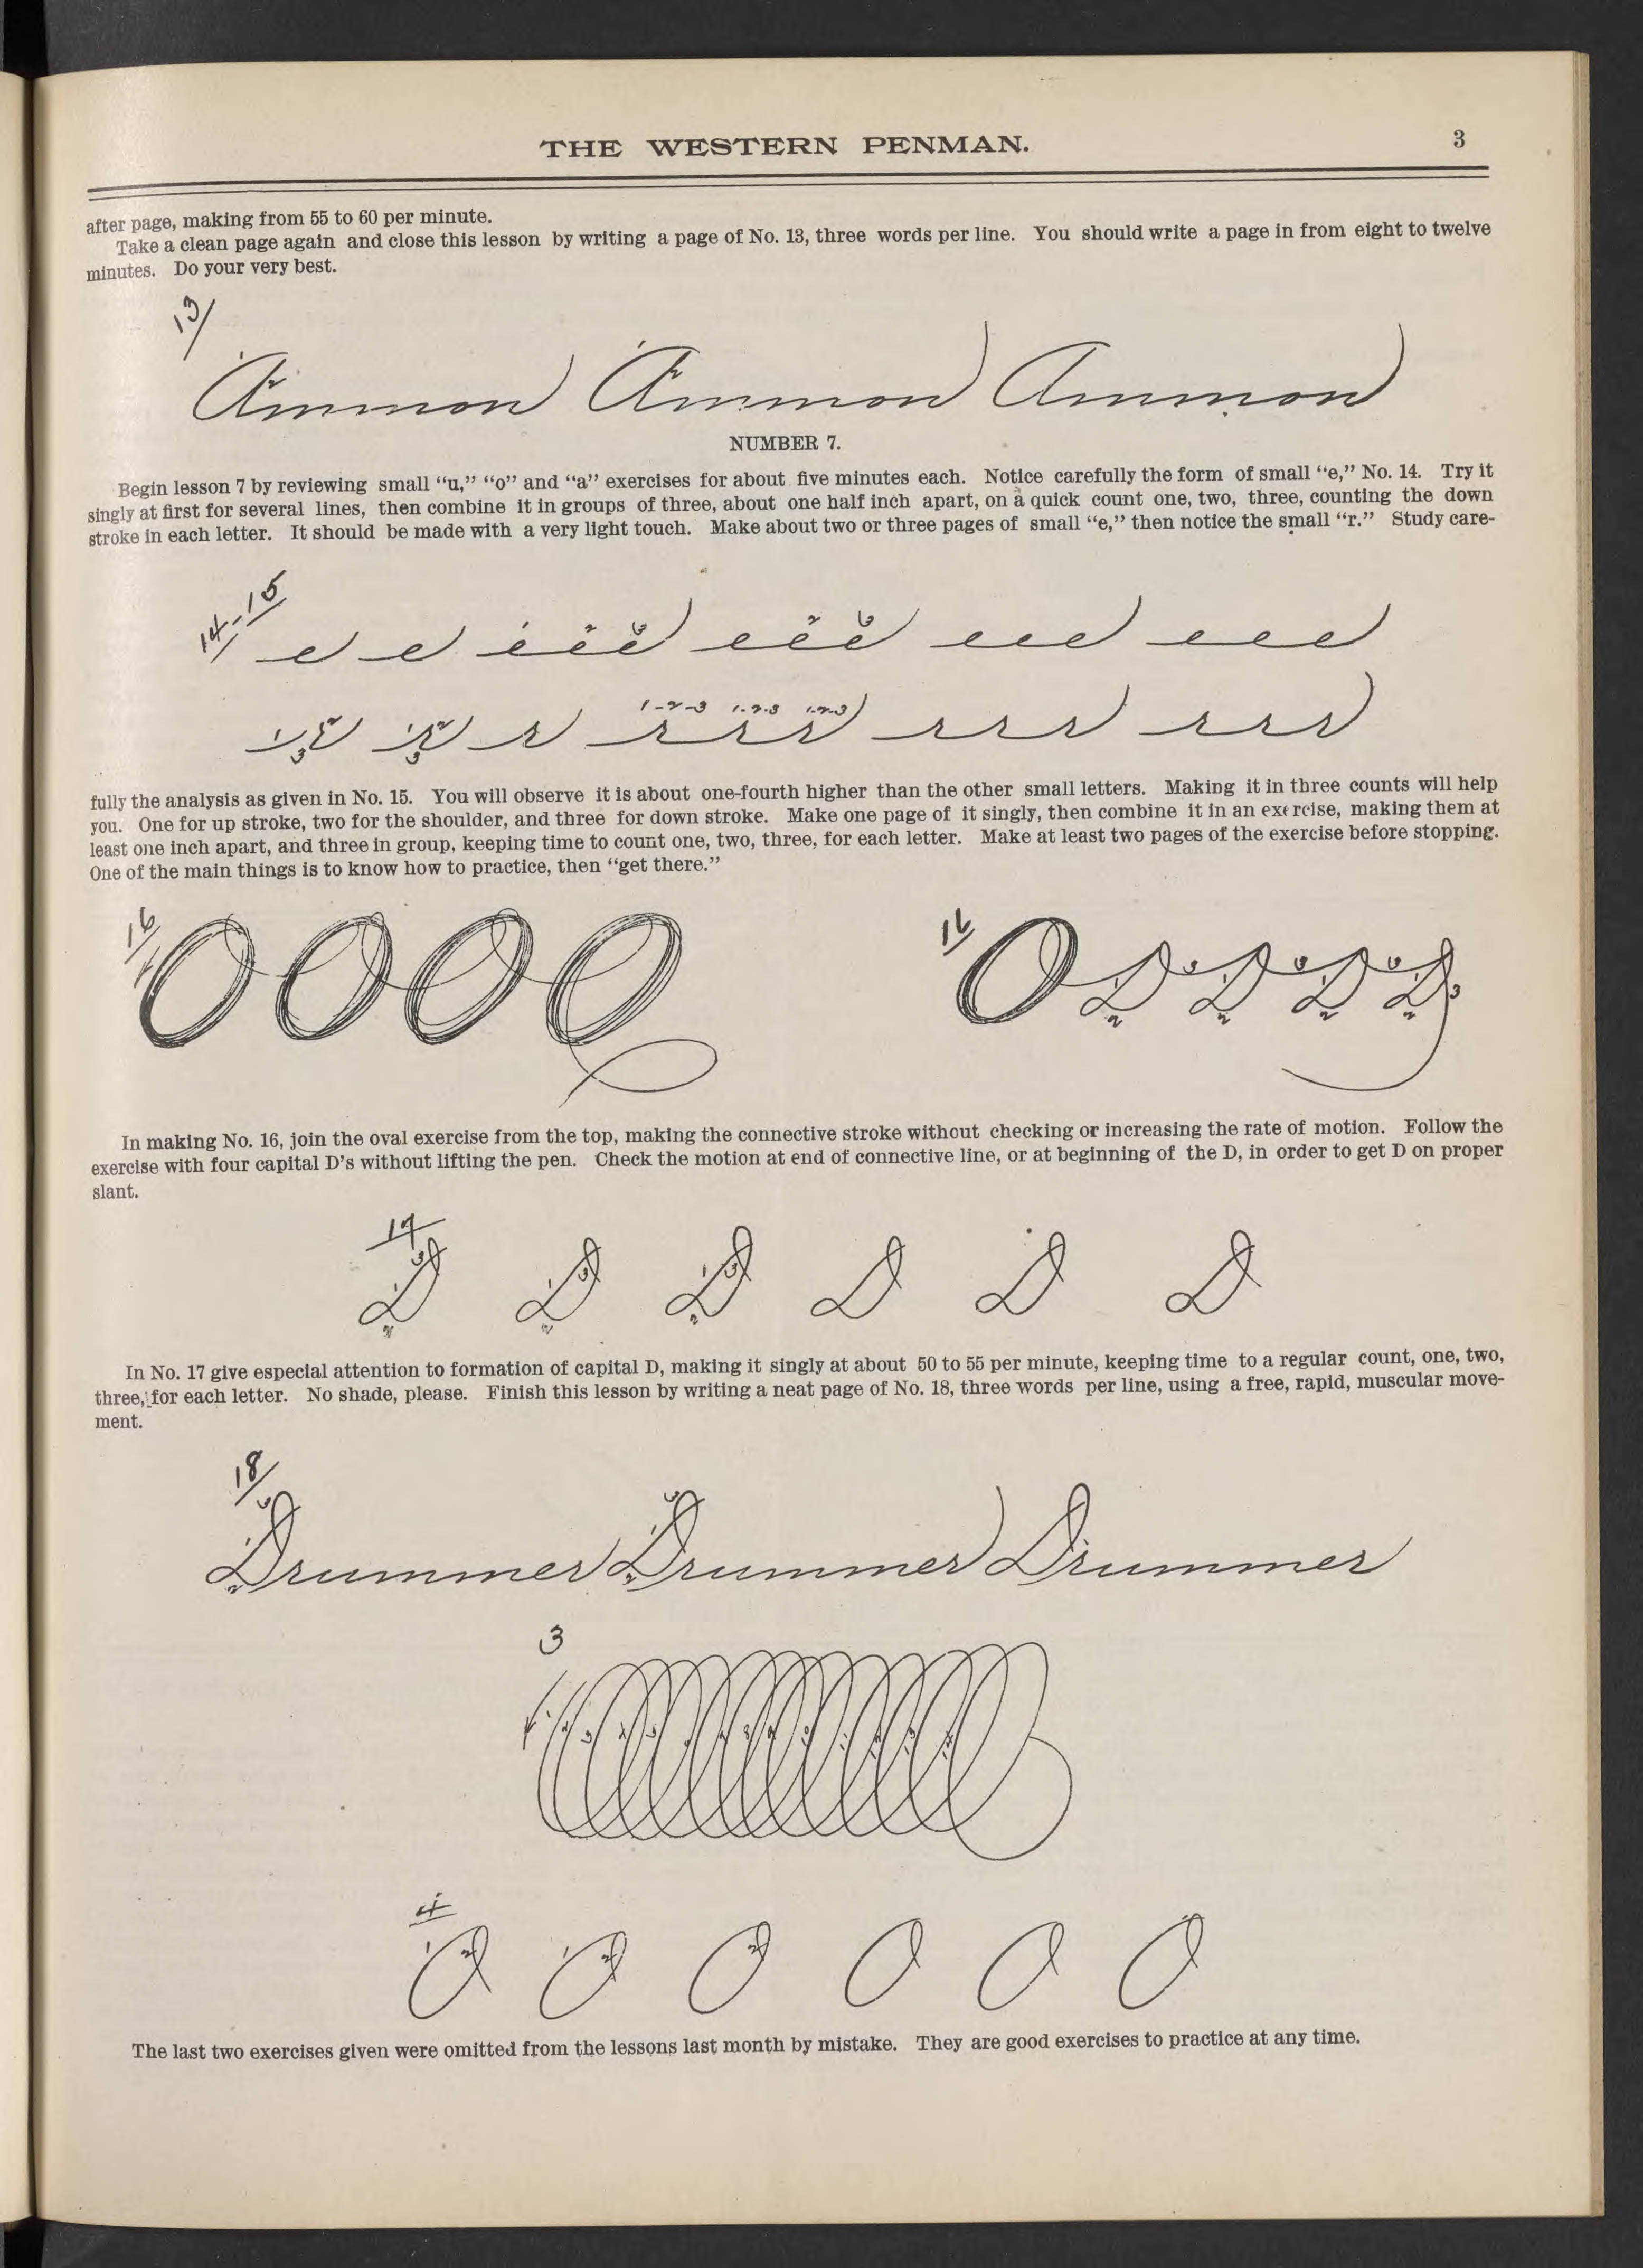 THE WESTERN PENMAN.
3
after page, making from 55 to 60 per minute.
Take a clean page again and close this lesson by writing a page of No. 13, three words per line. You should write a page in from eight to twelve
minutes. Do your very best.
13
Ammon Ammon Ammon
NUMBER 7.
Begin lesson 7 by reviewing small “u,” “o” and “a” exercises for about five minutes each. Notice carefully the form of small “e,” No. 14. Try it
singly at first for several lines, then combine it in groups of three, about one half inch apart, on a quick count one, two, three, counting the down
stroke in each letter. It should be made with a very light touch. Make about two or three pages of small “e,” then notice the small “r.” Study care-
14-15
e e e e e e e e e e e e e e
1 2 3 1 2 3 1-2-3 1-2-3 1-2-3
r r r r r r r r r r r r
fully the analysis as given in No. 15. You will observe it is about one-fourth higher than the other small letters. Making it in three counts will help
you. One for up stroke, two for the shoulder, and three for down stroke. Make one page of it singly, then combine it in an exercise, making them at
least one inch apart, and three in group, keeping time to count one, two, three, for each letter. Make at least two pages of the exercise before stopping.
One of the main things is to know how to practice, then “get there.”
16
16
O D D D D
In making No. 16, join the oval exercise from the top, making the connective stroke without checking or increasing the rate of motion. Follow the
exercise with four capital D’s without lifting the pen. Check the motion at end of connective line, or at beginning of the D, in order to get D on proper
slant.
17
D D D D D D
In No. 17 give especial attention to formation of capital D, making it singly at about 50 to 55 per minute, keeping time to a regular count, one, two,
three, for each letter. No shade, please. Finish this lesson by writing a neat page of No. 18, three words per line, using a free, rapid, muscular move-
ment.
18
Drummer Drummer Drummer
3
4
O O O O O O
The last two exercises given were omitted from the lessons last month by mistake. They are good exercises to practice at any time.